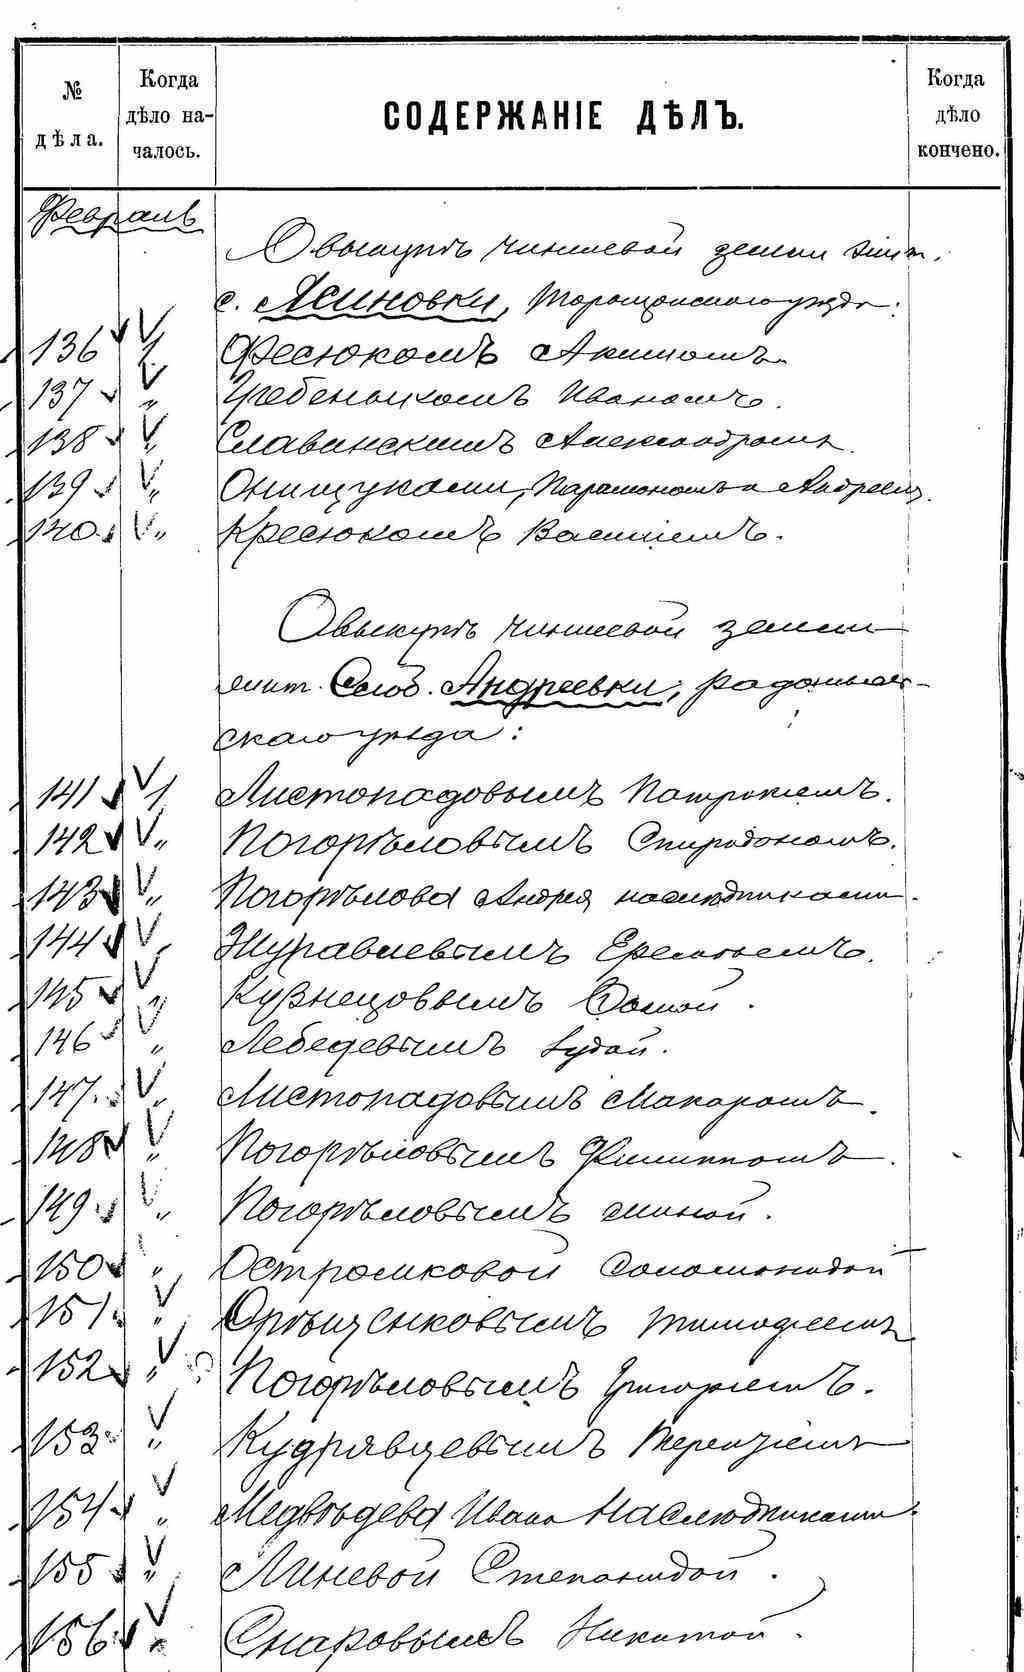 № дѣла.
Когда дѣло началось.
СОДЕРЖАНІЕ ДѢЛЪ.
Когда дѣло кончено.
Февраль
О выкупѣ чиншевой земли жит.
с. Ясиновки, Таращанскаго уѣзда:
136 1 Фесюкомъ Акимомъ.
137 " Гребенюкомъ Иваномъ.
138 " Славинскимъ Александромъ.
139 " Онищуками, Парамономъ и Андреемъ.
140 " Кресюкомъ Василіемъ.
О выкупѣ чиншевой земли
жит. Слоб. Андреевки, Радомысль-
скаго уѣзда:
141 1 Листопадовымъ Патрикіемъ.
142 " Погорѣловымъ Спиридономъ.
143 " Погорѣлова Андрея наслѣдниками.
144 " Журавлевымъ Еремѣемъ.
145 " Кузнецовымъ Ѳомой.
146 " Лебедевымъ
147 " Листопадовымъ Макаромъ.
148 " Погорѣловымъ Филиппомъ.
149 " Погорѣловымъ Миной.
150 " Соломонидой
151 " Тимофеемъ
152 " Погорѣловымъ Григоріемъ.
153 " Кудрявцевымъ Терентіемъ
154 " Медвѣдева Ивана наслѣдниками.
155 " Линевой Степанидой.
156 " Никитой.